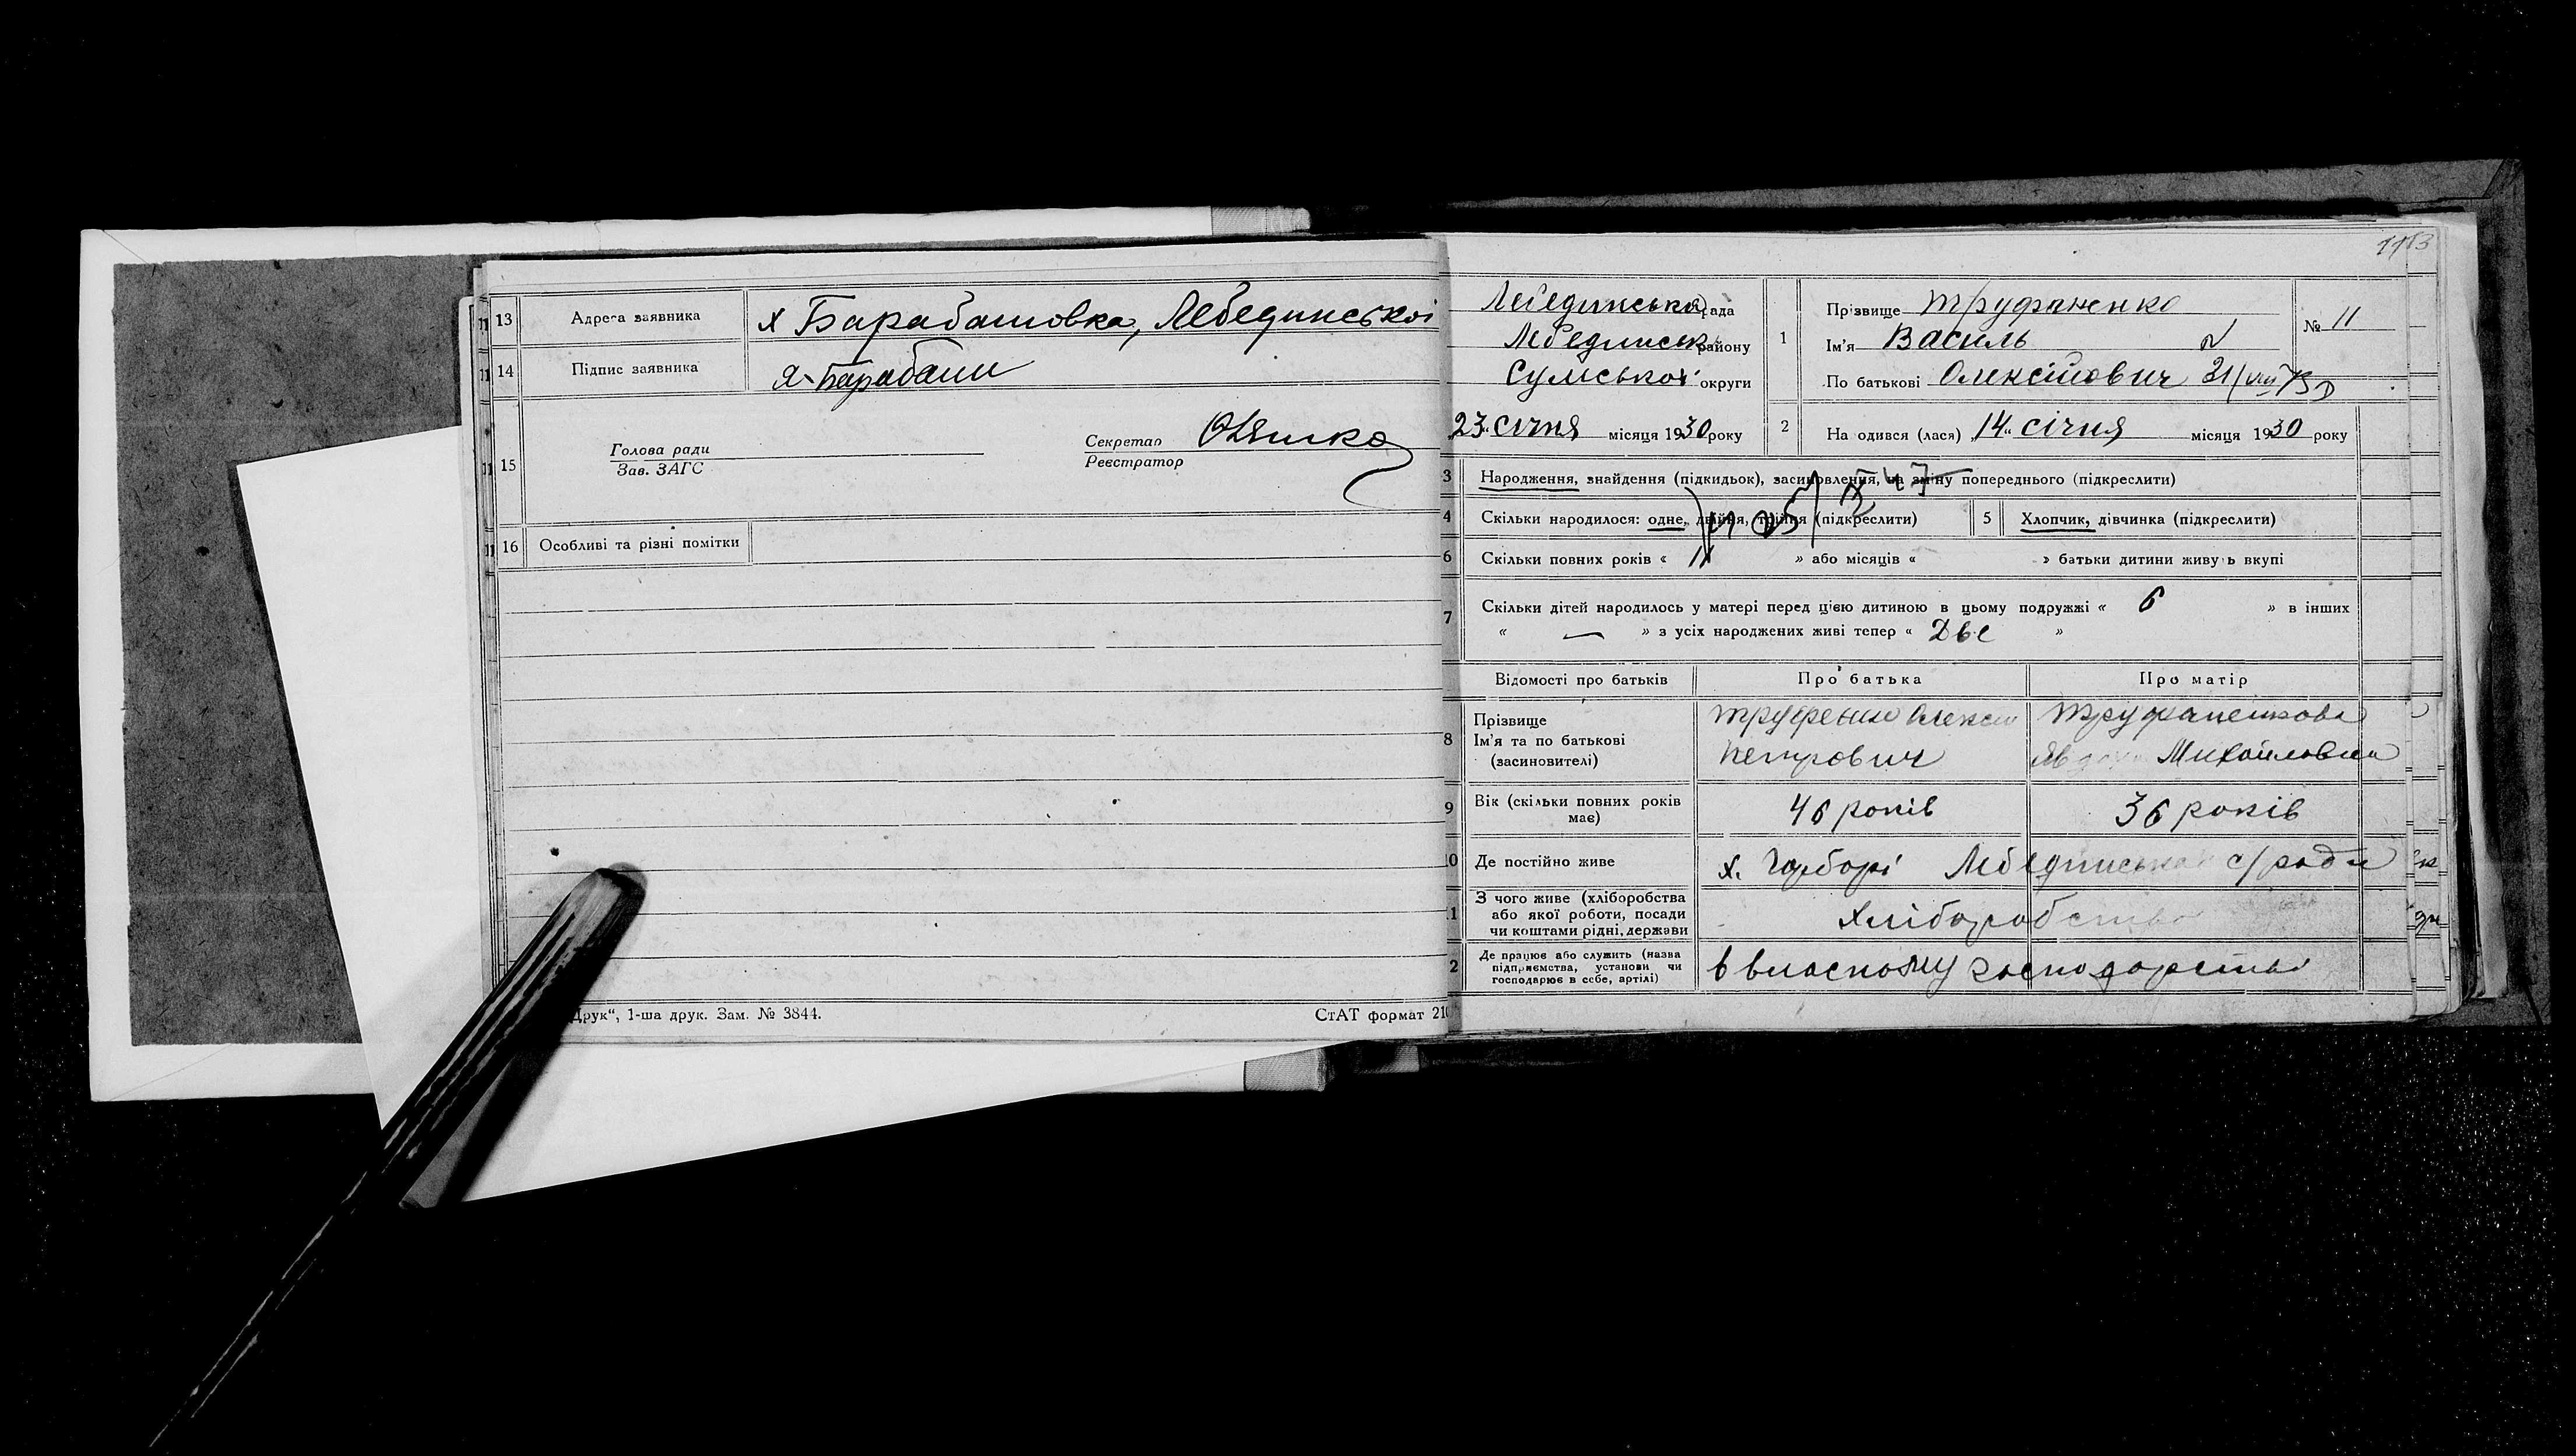 13 Адреса заявника х Барабашовка, Лебединської
14 Підпис заявника Я Барабаш
15 Голова ради
Зав. ЗАГС
Секретар
Реєстратор
16 Особливі та різні помітки
Друк“, 1-ша друк. Зам. № 3844.
СтАТ формат 210
Лебединська рада
Лебединськ району
Сумської округи
23 січня місяця 1930 року
1 Прізвище Труфаненко
Ім'я Василь
По батькові Олексійович 31/VIII
№ 11
2 На одився (лася) „14“ січня місяця 1930 року
3 Народження, знайдення (підкидьок), засиновлення, на зміну попереднього (підкреслити)
4 Скільки народилося: одне, двійня, трійня (підкреслити) 5 Хлопчик, дівчинка (підкреслити)
6 Скільки повних років « 11 » або місяців « » батьки дитини живуть вкупі
7 Скільки дітей народилось у матері перед цією дитиною в цьому подружжі « 6 » в інших
« — » з усіх народжених живі тепер « Двє »
Відомості про батьків Про батька Про матір
8 Прізвище
Ім'я та по батькові
(засиновителі)
Петрович
Михайловна
9 Вік (скільки повних років
має)
46 років 36 років
10 Де постійно живе х. Лебединська с/ради
11 З чого живе (хліборобства
або якої роботи, посади
чи коштами рідні, держави
Хліборобство
12 Де працює або служить (назва
підприємства, установи чи
господарює в себе, артілі)
в власному господарстві